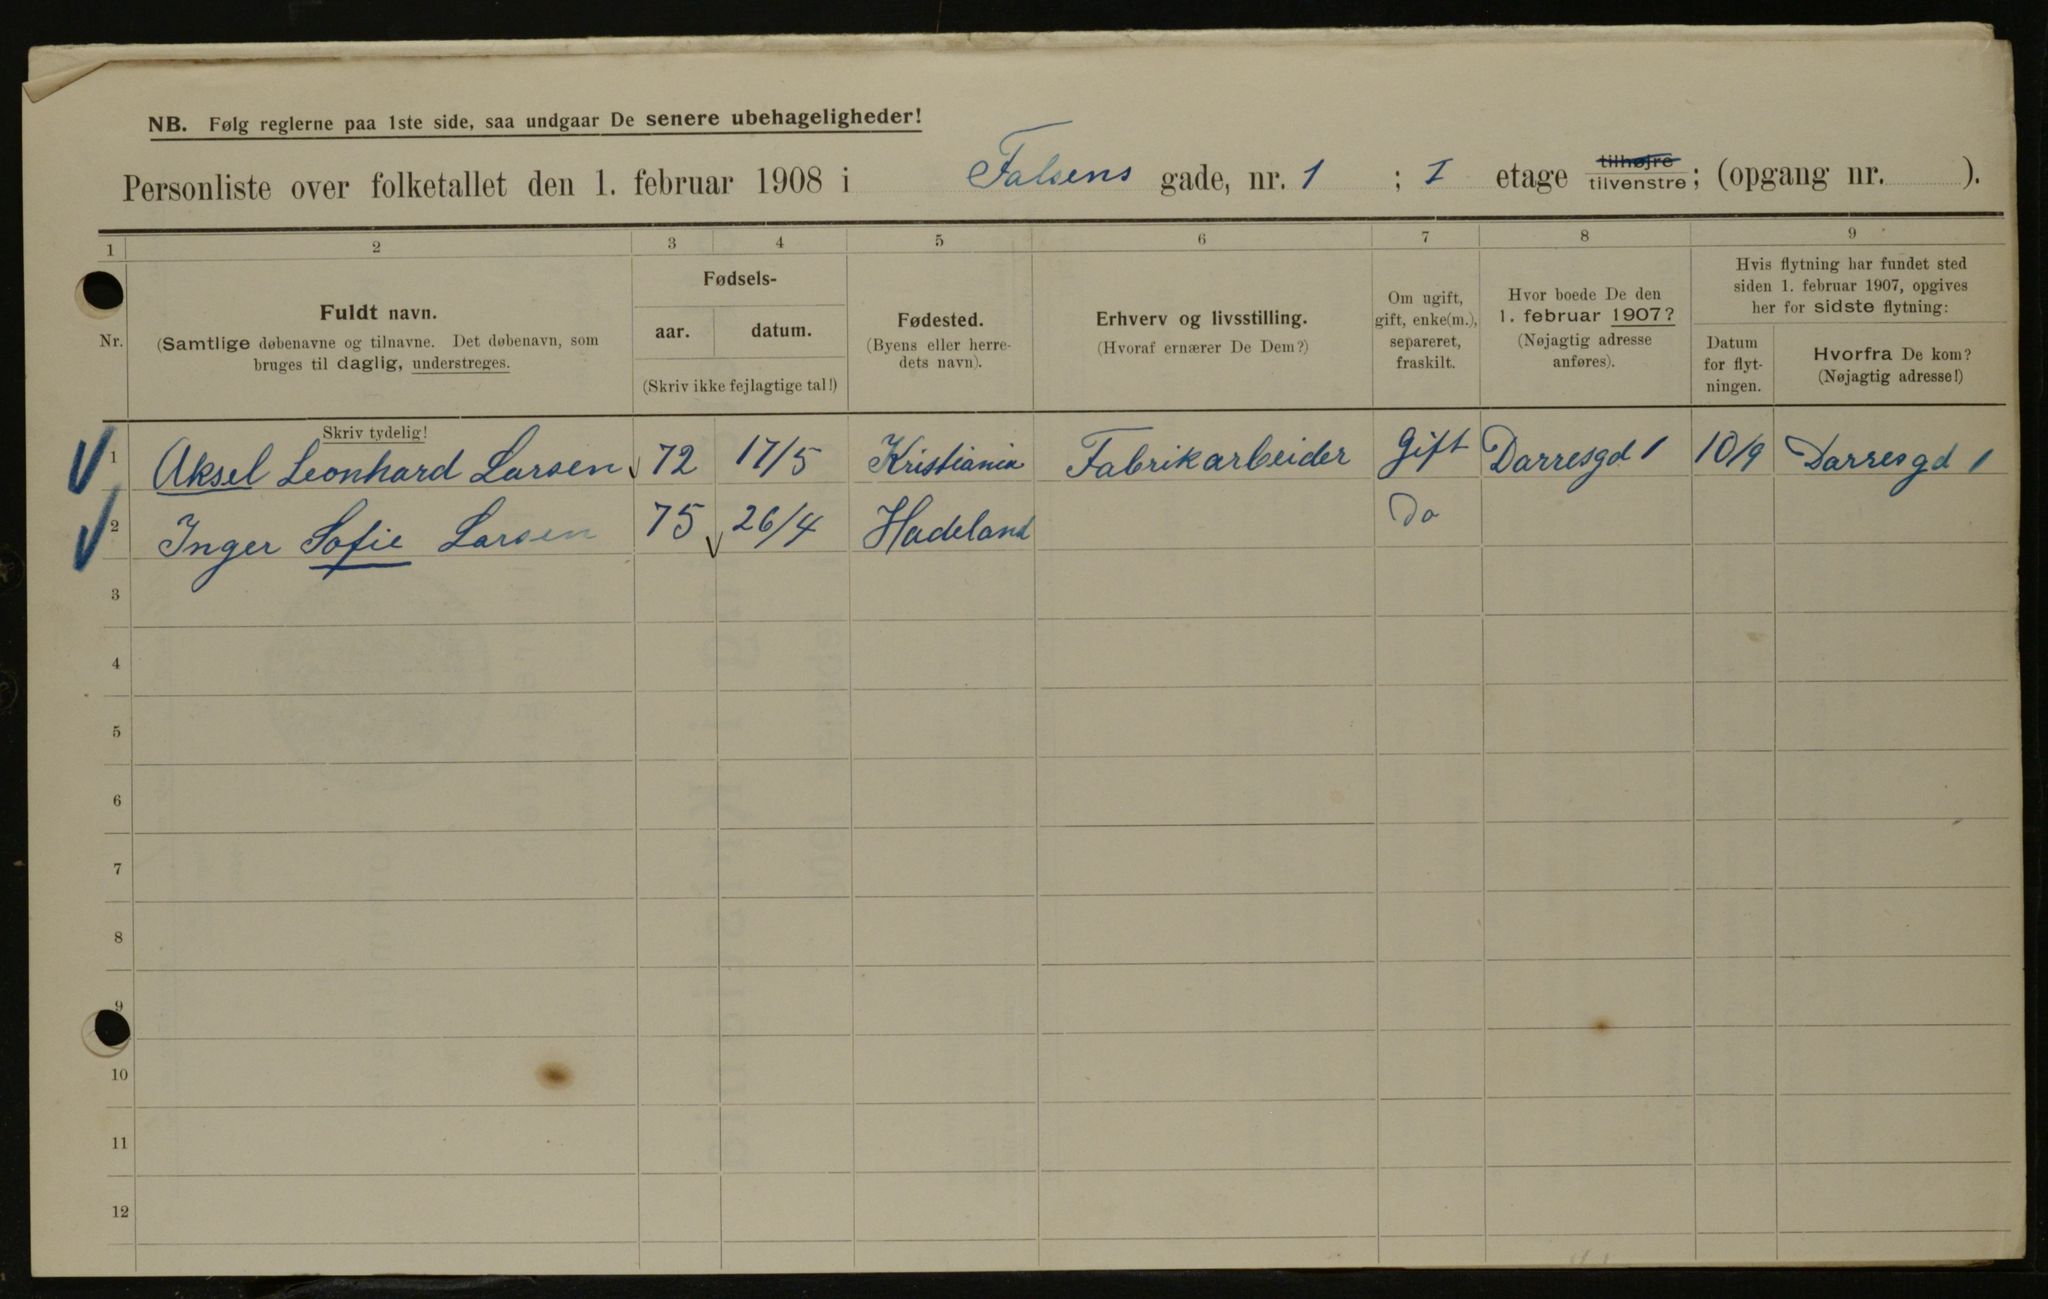 NB. Følg reglerne paa 1ste side, saa undgaar De senere ubehageligheder!
Personliste over folketallet den 1. februar 1908 i Falsens gade, nr. 1 ; I etage tilhøjre tilvenstre; (opgang nr. ).
1 2 3 4 5 6 7 8 9
Nr.
Fuldt navn.
(Samtlige døbenavne og tilnavne. Det døbenavn, som
bruges til daglig, understreges.
Fødsels-
aar. datum.
(Skriv ikke fejlagtige tal!)
Fødested.
(Byens eller herre-
dets navn).
Erhverv og livsstilling.
(Hvoraf ernærer De Dem?)
Om ugift,
gift, enke(m.),
separeret,
fraskilt.
Hvor boede De den
1. februar 1907?
(Nøjagtig adresse
anføres).
Hvis flytning har fundet sted
siden 1. februar 1907, opgives
her for sidste flytning:
Datum
for flyt-
ningen.
Hvorfra De kom?
(Nøjagtig adresse!)
Skriv tydelig!
1 Aksel Leonhard Larsen 72 17/5 Kristiania Fabrikarbeider Gift Darresgd 1 10/9 Darresgd 1
2 Inger Sofie Larsen 75 26/4 Hadeland Do
3
4
5
6
7
8
9
10
11
12